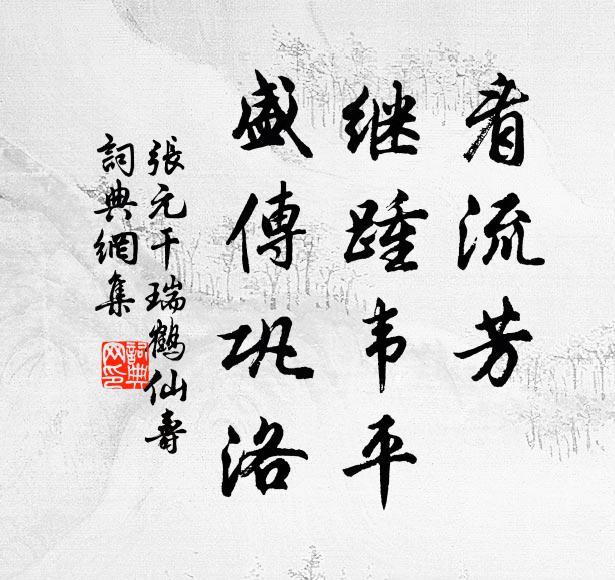 看流芳
继踵韦平
盛傳巩洛
張元干瑞鶴仙壽
詞典網集
詞典
网印